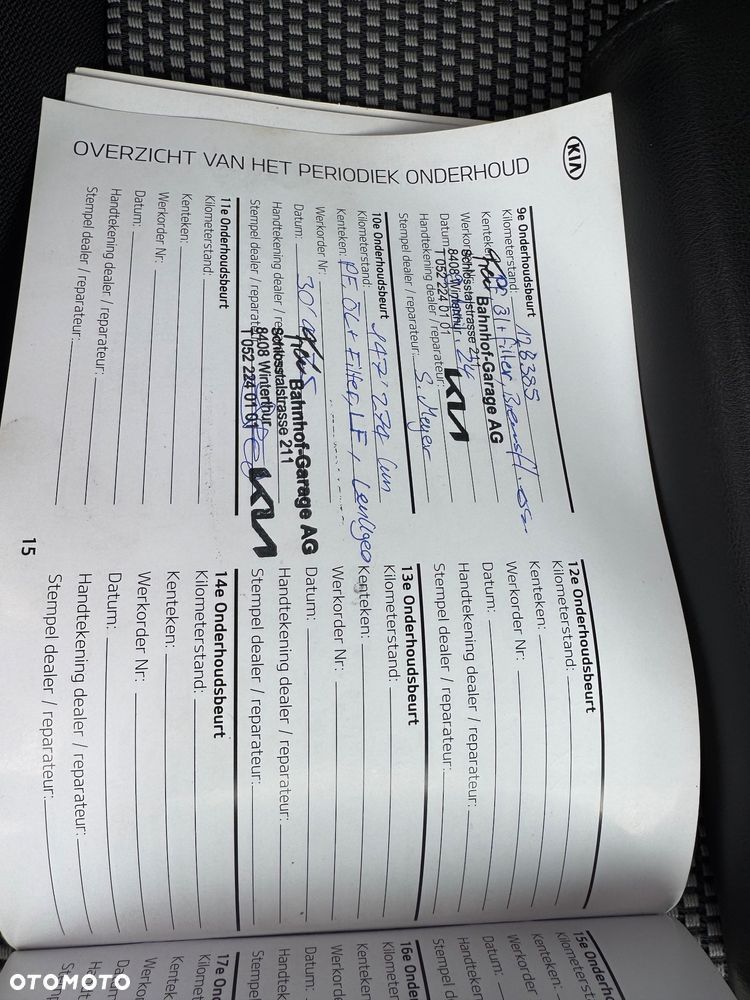 KIA
OVERZICHT VAN HET PERIODIEK ONDERHOUD
9e Onderhoudsbeurt
Kilometerstand: 128385
Kenteken: + Filter, Bremsfl.
Werkorder
Datum: 24
Handtekening dealer / reparateur: S. Meyer
Stempel dealer / reparateur:
Bahnhof-Garage AG
Schlosstalstrasse 211
8408 Winterthur
T 052 224 01 01
KIA
10e Onderhoudsbeurt
Kilometerstand: 147'274 km
Kenteken: PF ÖL + Filter, LF,
Werkorder Nr:
Datum: 30
Handtekening dealer / reparateur:
Stempel dealer / reparateur:
Bahnhof-Garage AG
Schlosstalstrasse 211
8408 Winterthur
T 052 224 01 01
KIA
11e Onderhoudsbeurt
Kilometerstand:
Kenteken:
Werkorder Nr:
Datum:
Handtekening dealer / reparateur:
Stempel dealer / reparateur:
12e Onderhoudsbeurt
Kilometerstand:
Kenteken:
Werkorder Nr:
Datum:
Handtekening dealer / reparateur:
Stempel dealer / reparateur:
13e Onderhoudsbeurt
Kilometerstand:
Kenteken:
Werkorder Nr:
Datum:
Handtekening dealer / reparateur:
Stempel dealer / reparateur:
14e Onderhoudsbeurt
Kilometerstand:
Kenteken:
Werkorder Nr:
Datum:
Handtekening dealer / reparateur:
Stempel dealer / reparateur:
15
15e Onderho
Kilometerstan
Kenteken:
Werkorder
Datum:
Handteke
Stempel d
16e Onde
Kilomete
Kenteken
Werkord
Datum:
Handte
Stempe
17e On
Kilom
Kente
Werk
Datu
Ha
Ste
OTOMOTO